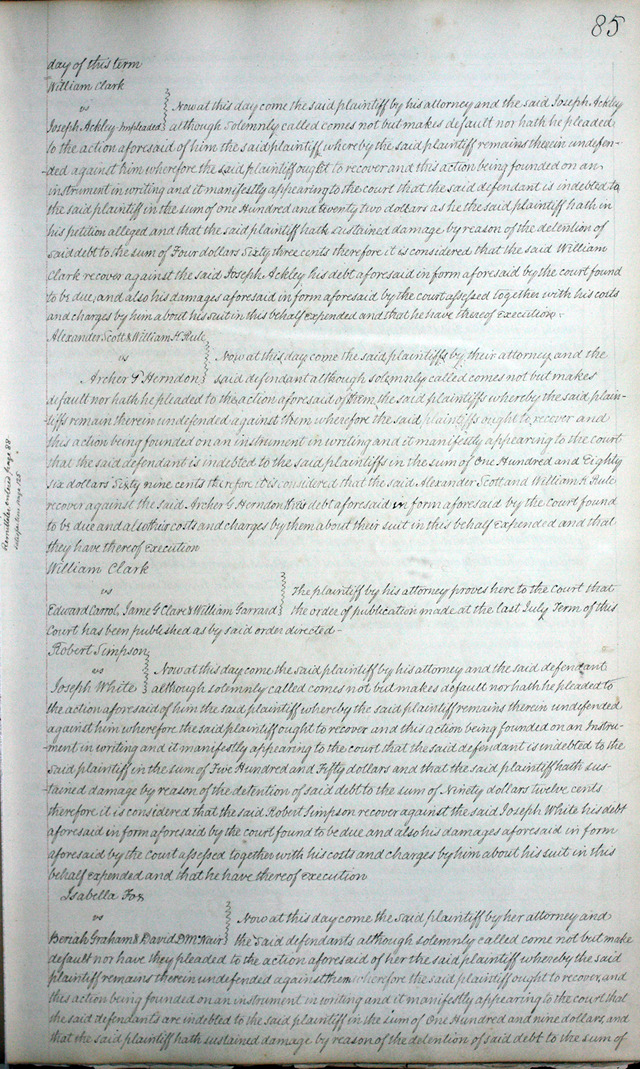 85
day of this term
William Clark
vs
Now at this day come the said plaintiff by his attorney and the said Joseph Ackley
Joseph Ackley Impleaded although solemnly called comes not but makes default nor hath he pleaded
to the action aforesaid of him the said plaintiff whereby the said plaintiff remains therein undefen-
ded against him wherefore the said plaintiff ought to recover and this action being founded on an
instrument in writing and it manifestly appearing to the court that the said defendant is indebted to
the said plaintiff in the sum of one Hundred and twenty two dollars as he the said plaintiff hath in
his petition alleged and that the said plaintiff hath sustained damage by reason of the detention of
said debt to the sum of Four dollars Sixty three cents therefore it is considered that the said William
Clark recover against the said Joseph Ackley his debt aforesaid in form aforesaid by the court found
to be due, and also his damages aforesaid in form aforesaid by the court assessed together with his costs
and charges by him about his suit in this behalf expended and that he have thereof execution.
Alexander Scott & William K Rule
vs
Now at this day come the said plaintiffs by their attorney and the
Archer G Herndon said defendant although solemnly called comes not but makes
default nor hath he pleaded to the action aforesaid of them the said plaintiffs whereby the said plain-
tiffs remain therein undefended against them wherefore the said plaintiffs ought to recover and
this action being founded on an instrument in writing and it manifestly appearing to the court
that the said defendant is indebted to the said plaintiffs in the sum of One Hundred and Eighty
six dollars Sixty nine cents therefore it is considered that the said Alexander Scott and William K Rule
recover against the said Archer G Herndon debt aforesaid in form aforesaid by the court found
to be due and also their costs and charges by them about their suit in this behalf expended and that
they have thereof execution
Remittitur entered page 88
satisfaction page 125
William Clark
vs
The plaintiff by his attorney proves here to the Court that
Edward Carrol, Jame G Clare & William Garrard the order of publication made at the last July Term of this
Court has been published as by said order directed-
Robert Simpson
vs
Now at this day come the said plaintiff by his attorney and the said defendant
Joseph White although solemnly called comes not but makes default nor hath he pleaded to
the action aforesaid of him the said plaintiff whereby the said plaintiff remains therein undefended
against him wherefore the said plaintiff ought to recover and this action being founded on an Instru-
ment in writing and it manifestly appearing to the court that the said defendant is indebted to the
said plaintiff in the sum of Five Hundred and Fifty dollars and that the said plaintiff hath sus-
tained damage by reason of the detention of said debt to the sum of Ninety dollars twelve cents
therefore it is considered that the said Robert Simpson recover against the said Joseph White his debt
aforesaid in form aforesaid by the court found to be due and also his damages aforesaid in form
aforesaid by the court assessed together with his costs and charges by him about his suit in this
behalf expended and that he have thereof execution
Isabella Fox
vs
Now at this day come the said plaintiff by her attorney and
Beriah Graham & David D McNair the said defendants although solemnly called come not but make
default nor have they pleaded to the action aforesaid of her the said plaintiff whereby the said
plaintiff remains therein undefended against them wherefore the said plaintiff ought to recover, and
this action being founded on an instrument in writing and it manifestly appearing to the court that
the said defendants are indebted to the said plaintiff in the sum of One Hundred and nine dollars, and
that the said plaintiff hath sustained damage by reason of the detention of said debt to the sum of